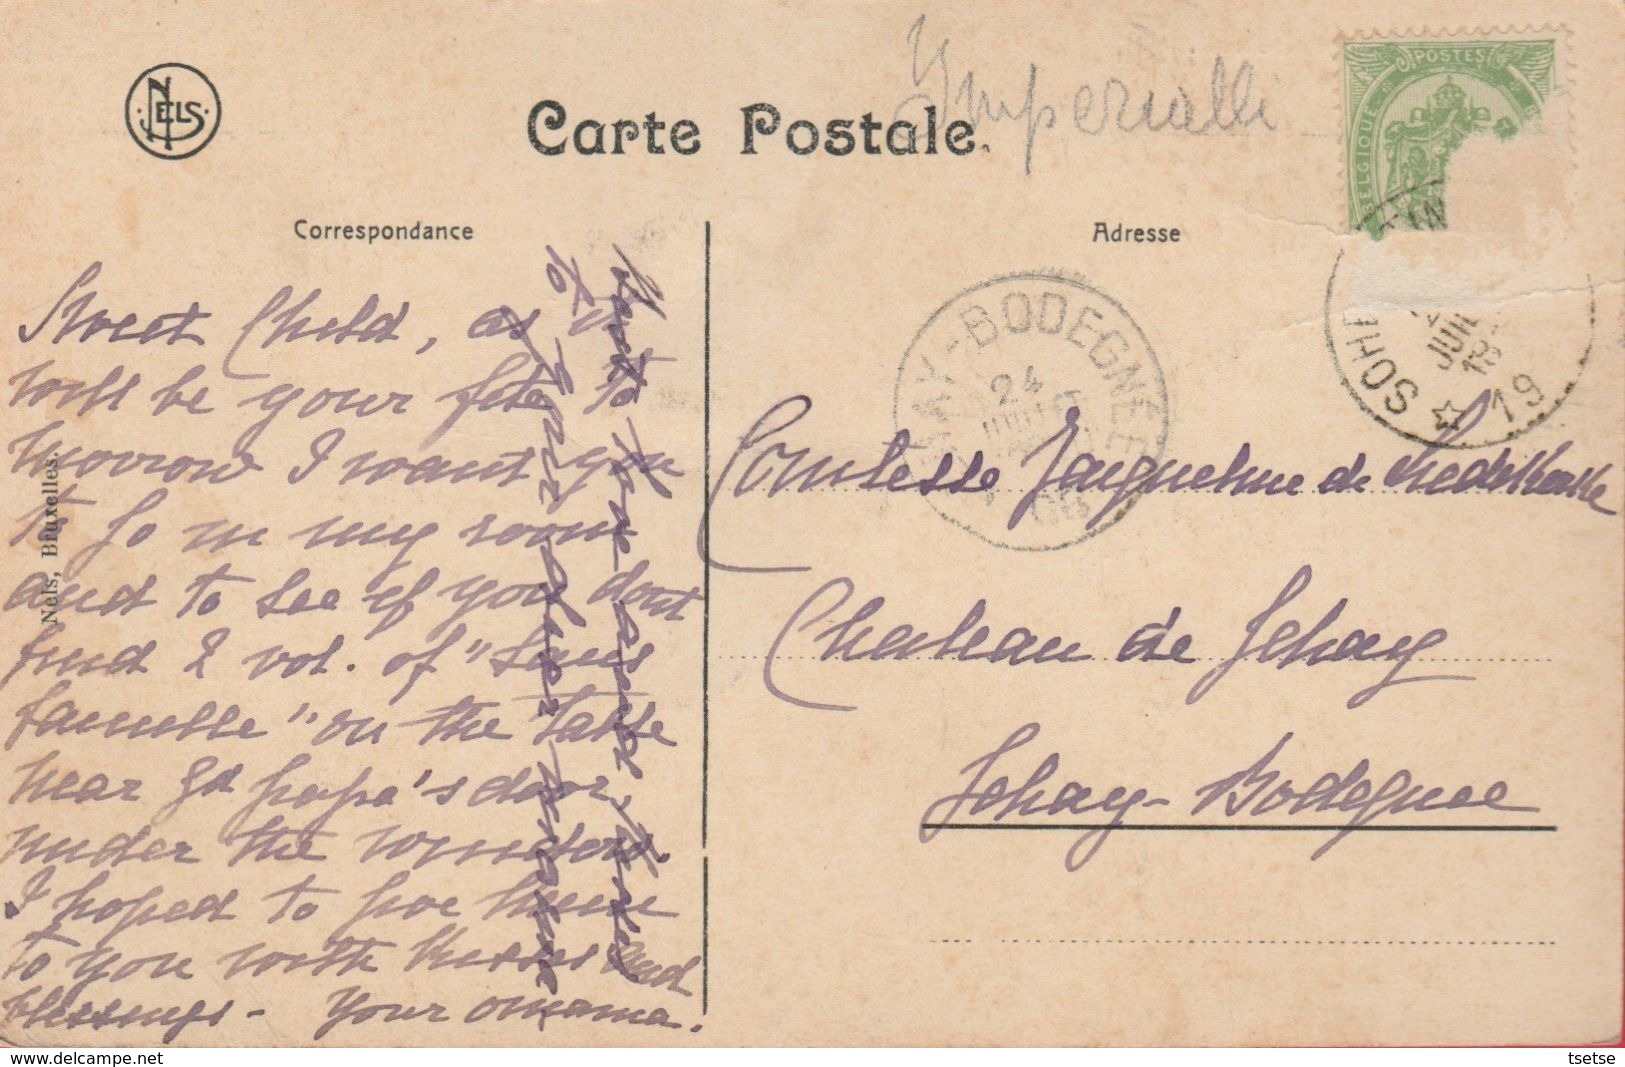 NELS
Carte Postale.
Imperialli
POSTES
BELGIQUE
Correspondance
Adresse
Sweet Child, as it
will be your fête to
morrow I want you
to go in my room
and to see if you dont
find 2 vol. of "Sans
famille" on the table
near Gd papa's door,
under the windows.
I hoped to give them
to you with kisses and
blessings - Your Omama.
to your sister
Nels, Bruxelles.
JEHAY-BODEGNÉE
24
JUIL
08
JUIL
18
19
SOHE
Comtesse Jacqueline de Liedekerke
Chateau de Jehay
Jehay-Bodegnée
delcampe.net
tsetse